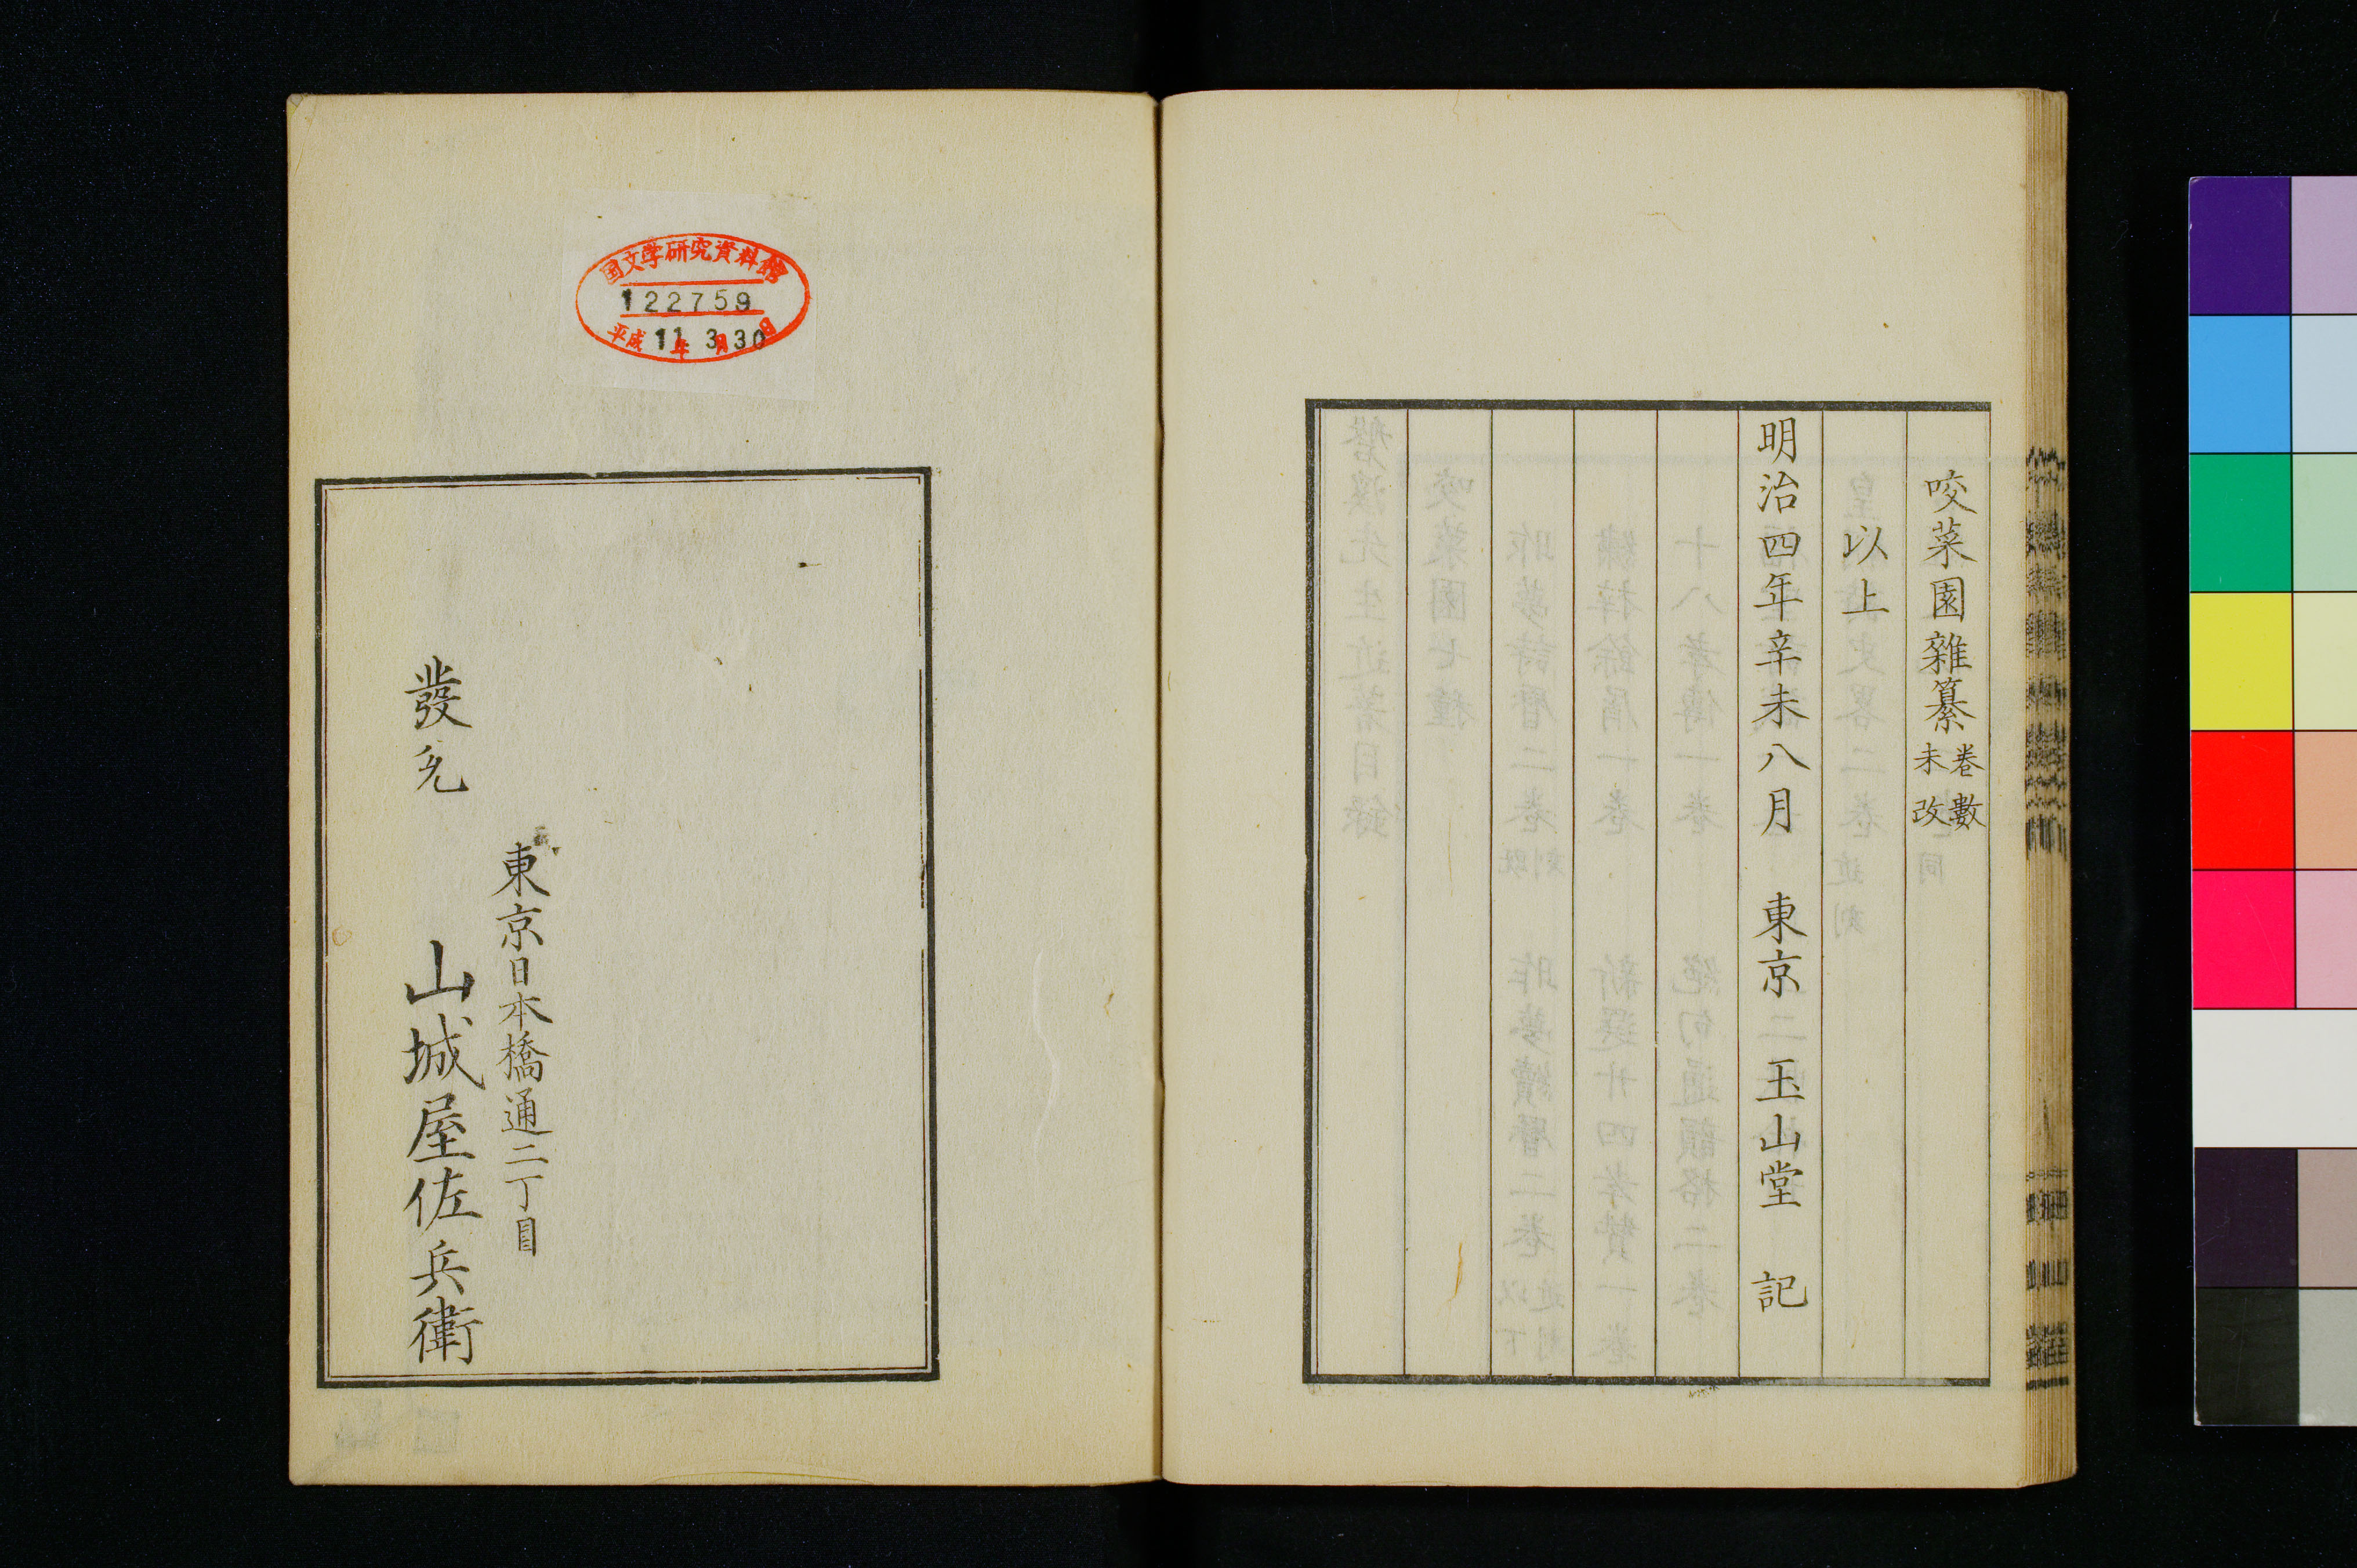 咬菜園雜纂 卷數未改
以上
明治四年辛未八月 東京 玉山堂 記
国文学研究資料館
122759
平成11年3月30日
東京日本橋通二丁目
發兌 山城屋佐兵衛